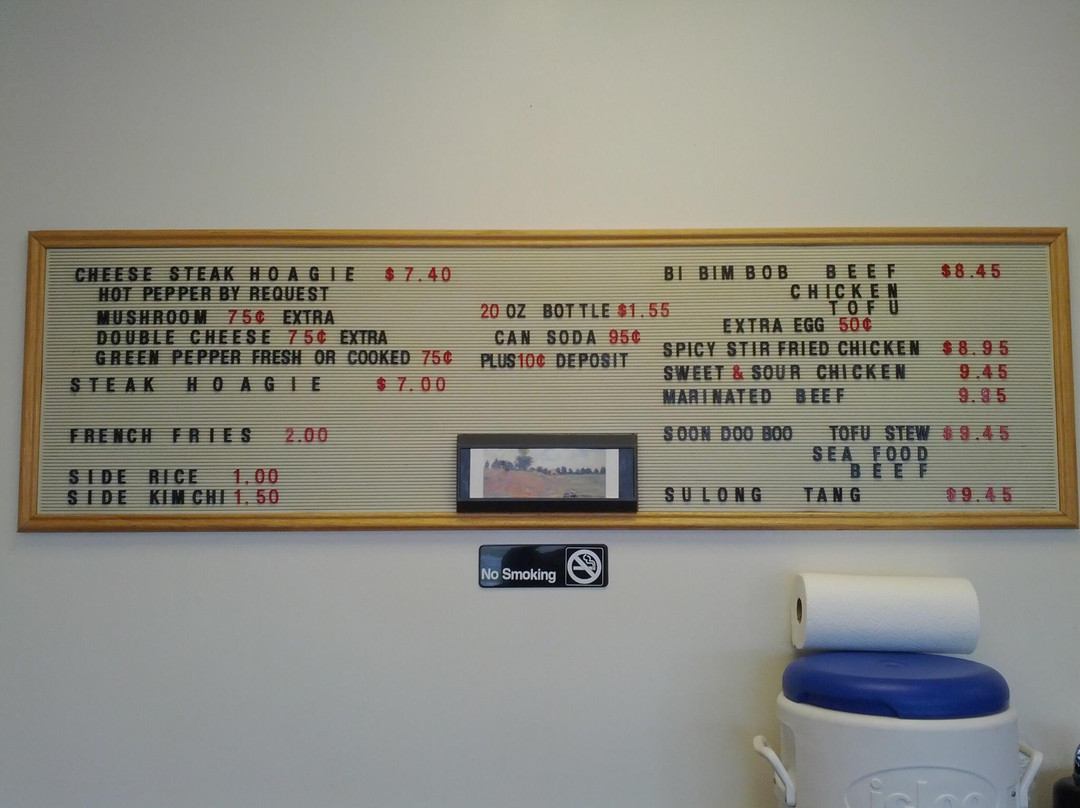 CHEESE STEAK HOAGIE $7.40
HOT PEPPER BY REQUEST
MUSHROOM 75¢ EXTRA
DOUBLE CHEESE 75¢ EXTRA
GREEN PEPPER FRESH OR COOKED 75¢
STEAK HOAGIE $7.00
FRENCH FRIES 2.00
SIDE RICE 1,00
SIDE KIMCHI 1,50
20 OZ BOTTLE $1.55
CAN SODA 95¢
PLUS 10¢ DEPOSIT
BI BIM BOB BEEF $8.45
CHICKEN
TOFU
EXTRA EGG 50¢
SPICY STIR FRIED CHICKEN $8.95
SWEET & SOUR CHICKEN 9.45
MARINATED BEEF 9.95
SOON DOO BOO TOFU STEW $9.45
SEA FOOD
BEEF
SULONG TANG $9.45
No Smoking
igloo